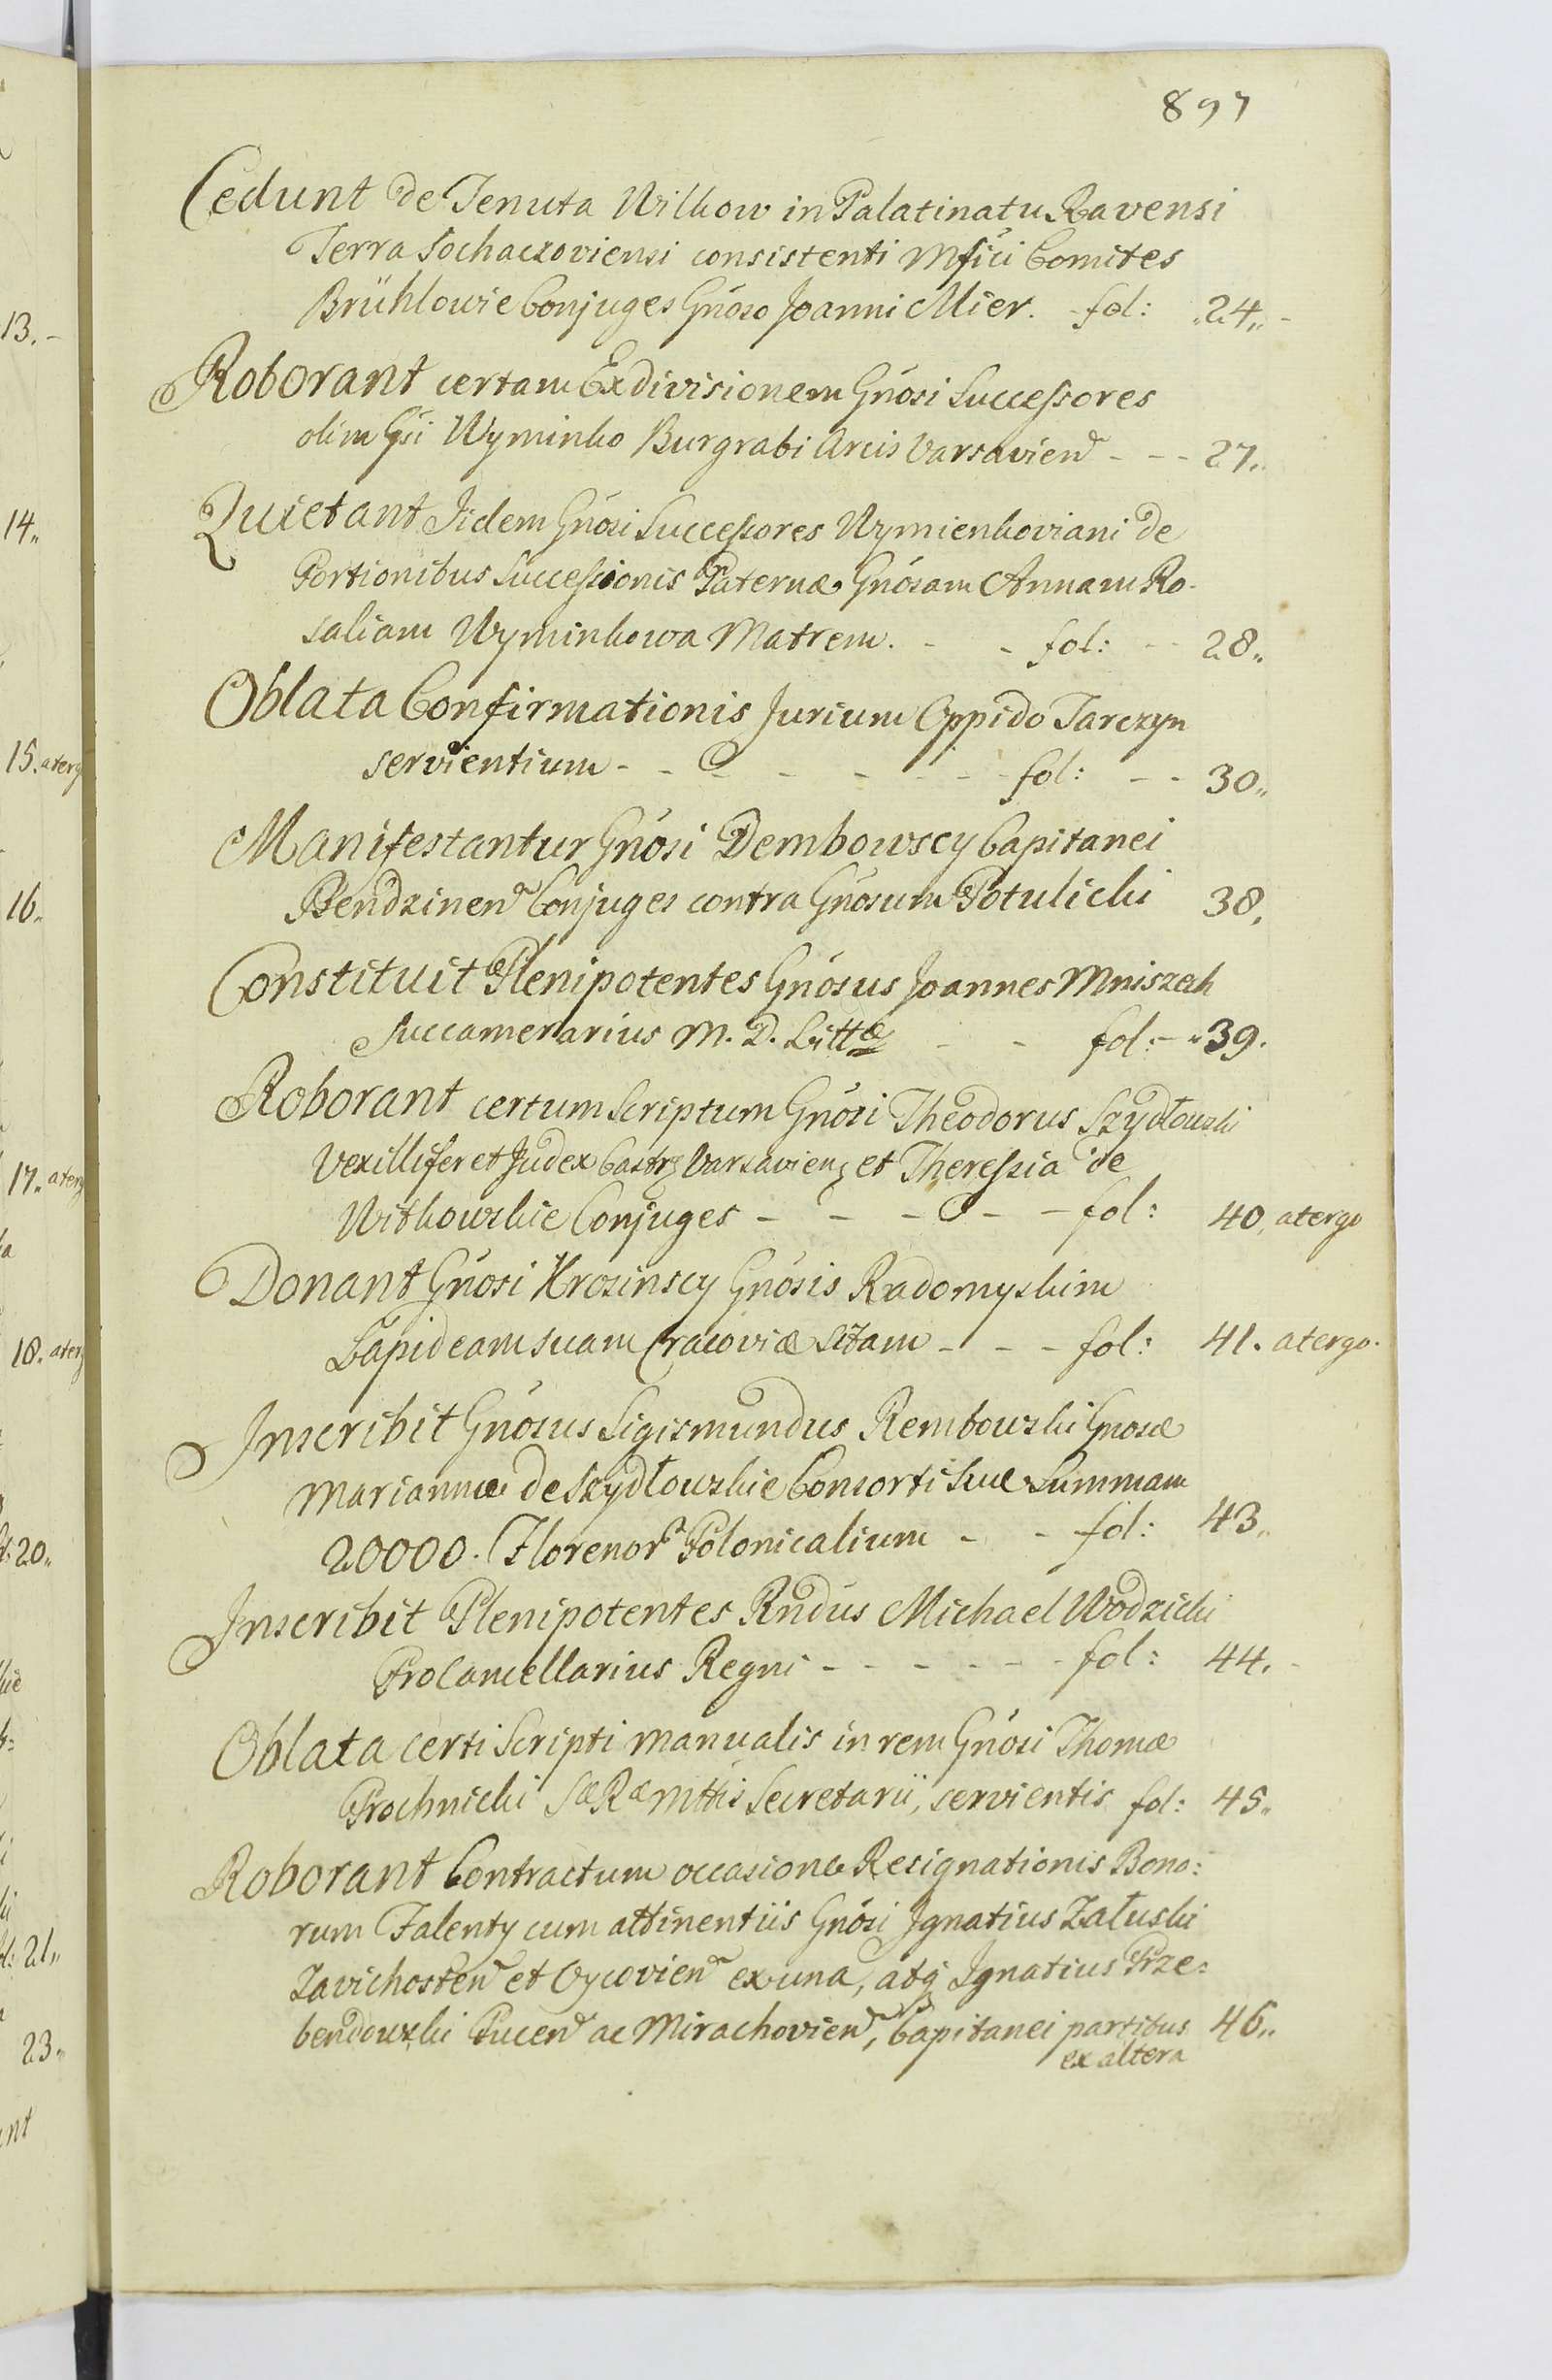 897
Cedunt de Tenuta Wilkow in Palatinatu Ravensi
Terra Sochaczoviensi consistenti Mfici Comites
Brühlowie Conjuges Gnoso Joanni Mier. - fol: 24.
Roborant certam Exdivisionem Gnosi Successores
olim Gsi Wyminko Burgrabi Arcis Varsavien - - - 27.
Quietant Iidem Gnosi Successores Wymienkoviani de
Portionibus Successionis Paternæ Gnosam Annam Ro-
saliam Wyminkowa Matrem. - - fol: - - 28.
Oblata Confirmationis Jurium Oppido Tarczyn
servientium - - - - - - - fol: - - 30.
Manifestantur Gnosi Dembowscy Capitanei
Bendzinen Conjuges contra Gnosum Potulicki 38.
Constituit Plenipotentes Gnosus Joannes Mniszch
Succamerarius M. D. Littæ - - fol: - 39.
Roborant certum Scriptum Gnosi Theodorus Szydłowski
Vexillifer et Judex Castr Varsavien et Theressia de
Witkowskie Conjuges - - - - - - fol: 40. atergo
Donant Gnosi Krosinscy Gnosis Radomyskim
Lapideam suam Cracoviæ sitam - - - fol: 41. atergo.
Inscribit Gnosus Sigismundus Rembowski Gnosæ
Mariannæ de Szydłowskie Consorti Suæ Summam
20000. Florenor Polonicalium - - fol: 43.
Inscribit Plenipotentes Rndus Michael Wodzicki
Procancellarius Regni - - - - - - fol: 44. -
Oblata certi Scripti manualis in rem Gnosi Thomæ
Prochnicki Sæ Ræ Mttis Secretarii, servientis fol: 45.
Roborant Contractum occasione Resignationis Bono:
rum Falenty cum attinentiis Gnosi Ignatius Załuski
Zavichosten et Oycovien ex una, atq Ignatius Prze:
bendowski Pucen ac Mirachovien, Capitanei partibus 46.
ex altera
13. -
14.
15. aterg
16.
17. aterg
18. aterg
20.
21.
23.